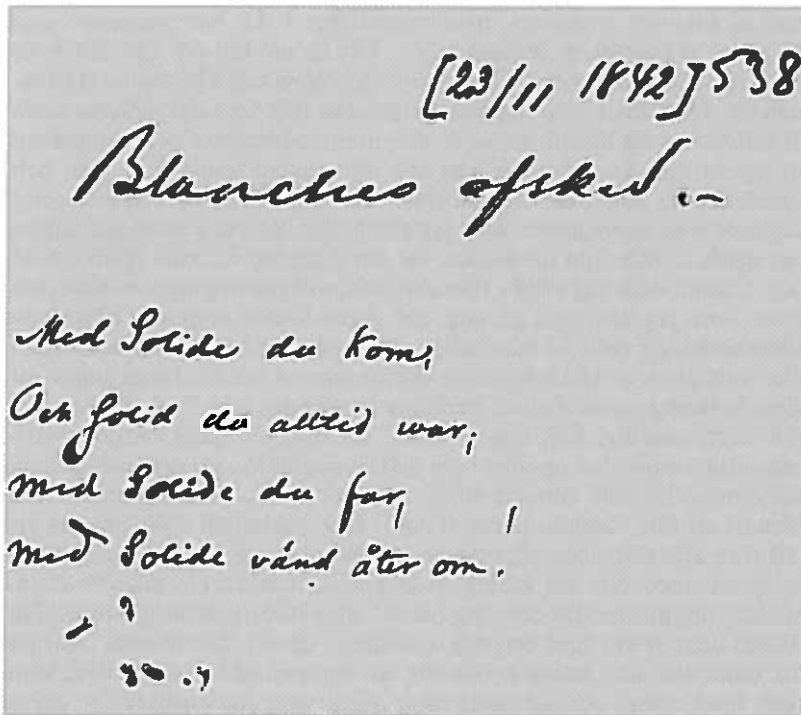 [23/11 1842] 538
Blanches afsked.-
Med Solide du kom,
Och Solid du alltid war,
med Solide du far,
med Solide vänd åter om!